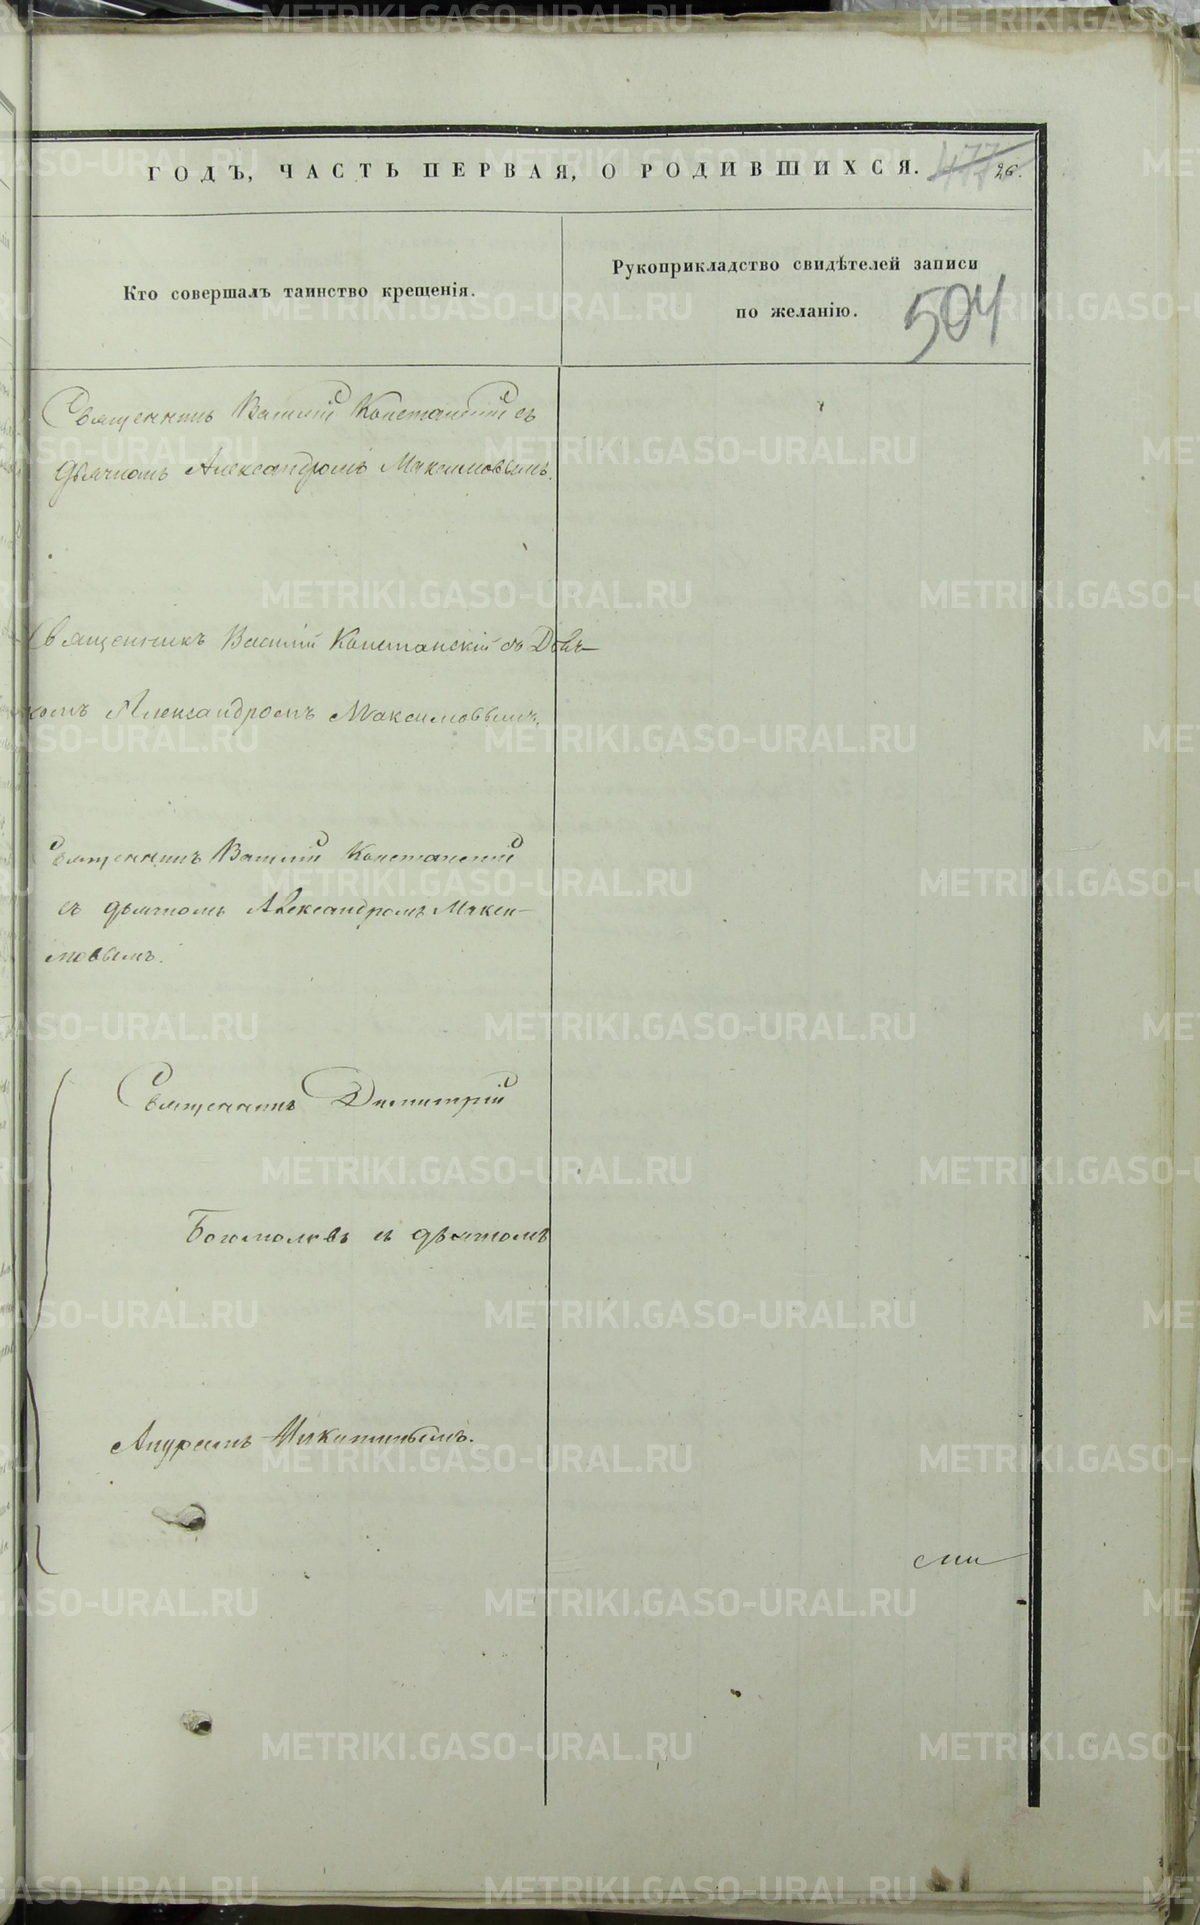 ГОДЪ, ЧАСТЬ ПЕРВАЯ, О РОДИВШИХСЯ. 477 26.
Кто совершалъ таинство крещенія.
Рукоприкладство свидѣтелей записи
по желанію.
504
Священникъ Василій Констанскій съ
дьячкомъ Александромъ Максимовымъ.
Священникъ Василій Констанскій съ Дьяч-
комъ Александромъ Максимовымъ.
Священникъ Василій Констанскій
съ дьячкомъ Александромъ Макси-
мовымъ.
Священникъ Димитрій
Богомоловъ съ дьячкомъ
Андреемъ Никитинымъ.
METRIKI.GASO-URAL.RU